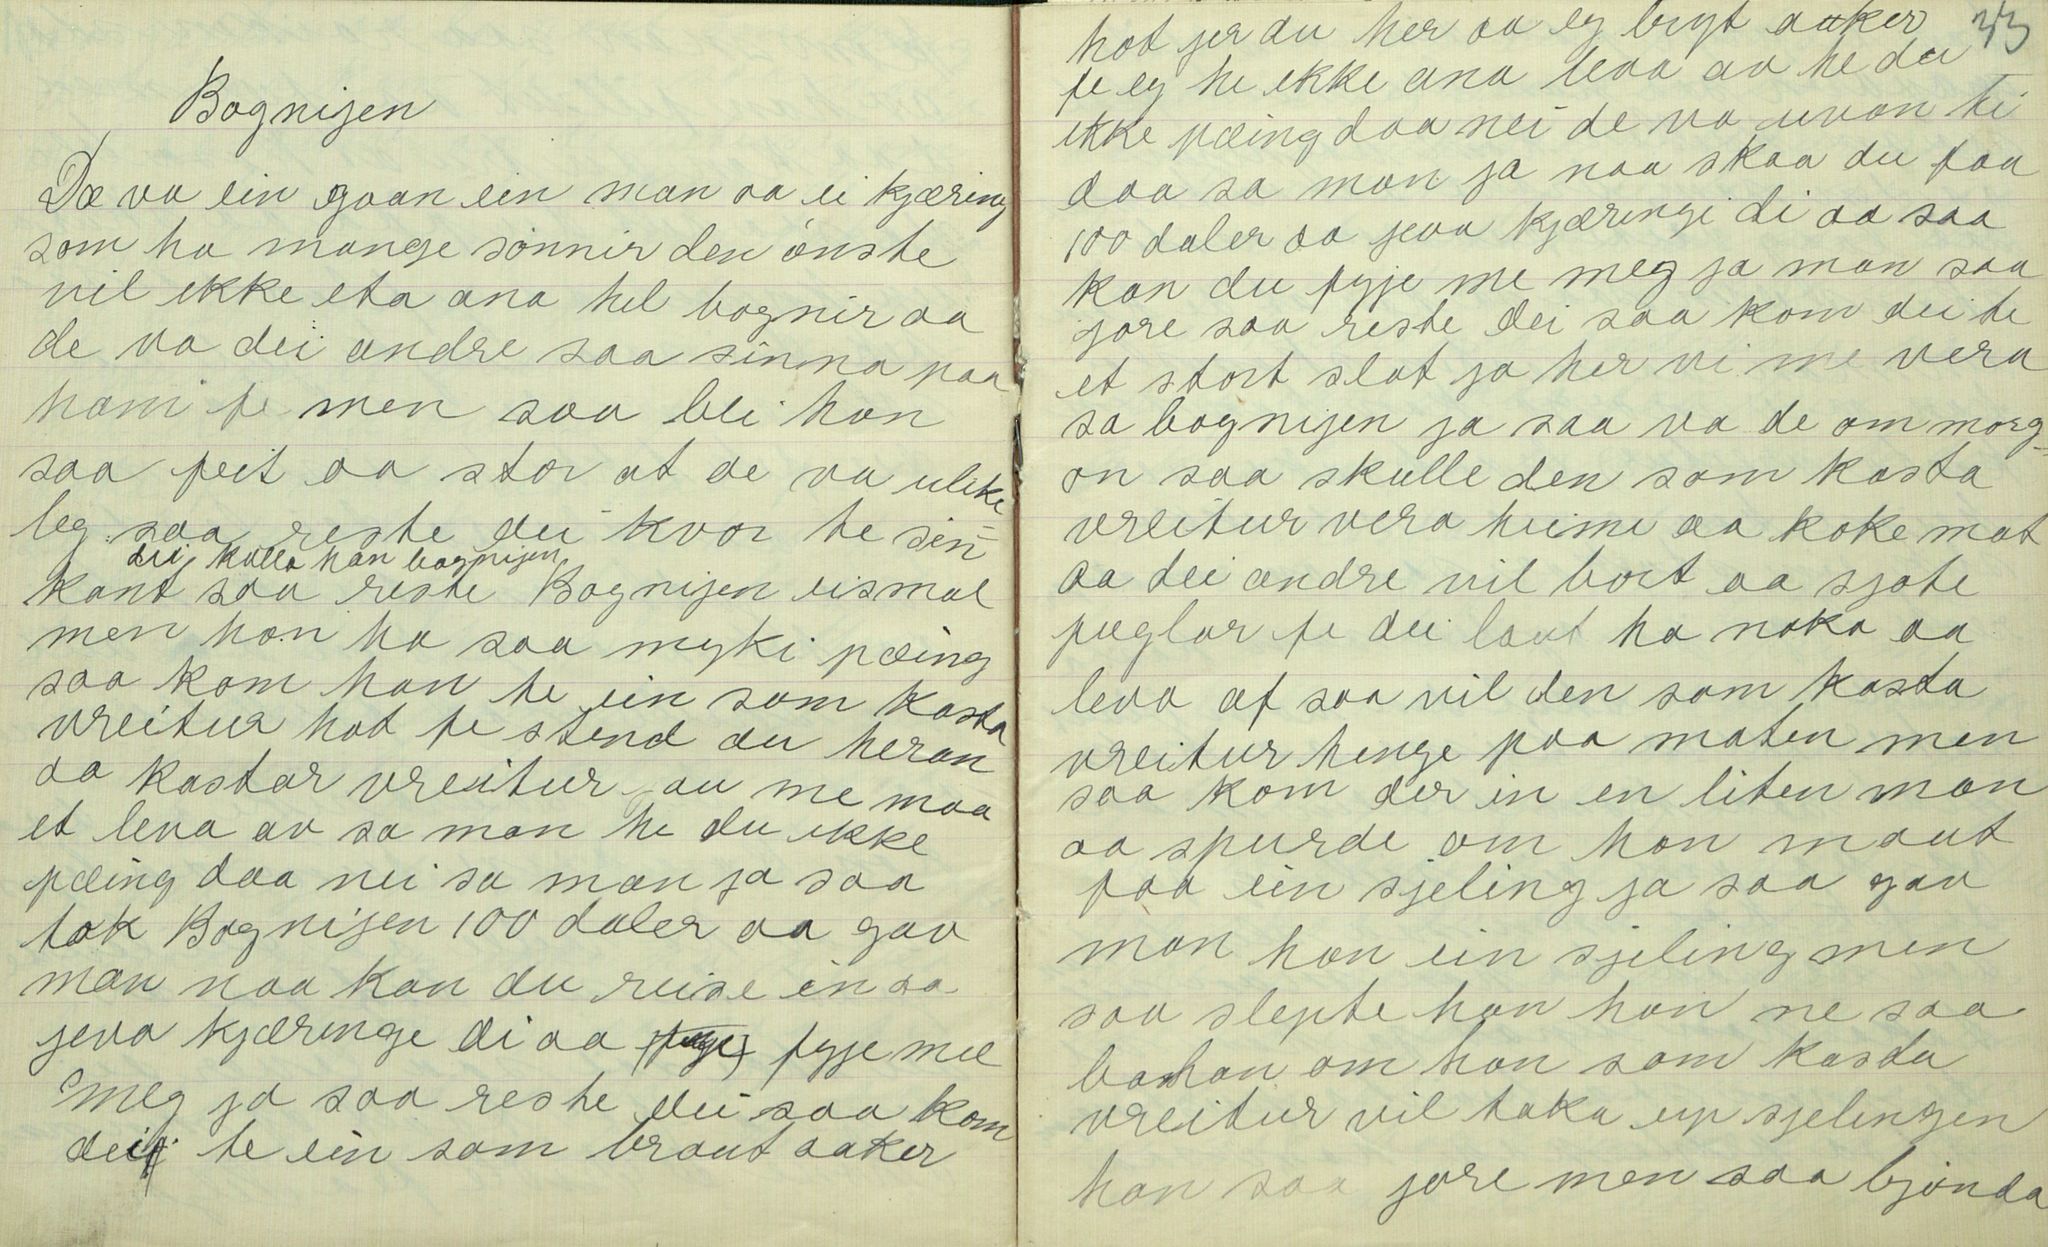 Bognisen
Dæ va ein gaan ein man aa ei kjæring
som ha mange sönnir den önste
vil ikke eta ana hel bognir aa
de va dei andre saa sinna paa
ham fe men saa blei han
saa feit aa stor at de va ulike
leg saa reste dei kvor te sin
dei kalla han bognisen
kant saa reste Bognisen eismal
men han ha saa myki pæing
saa kom han te ein som kasta
vreitur hot fe stend du heran
aa kastar vreitur au me maa
et leva av sa man he du ikke
pæing daa nei sa man ja saa
tok Bognisen 100 daler aa gav
man naa kan du reise in aa
jeva kjæringe di aa fyje mee
meg ja saa reste dei saa kom
dei te ein som braut aaker
33
hot jer du her aa eg bryt aaker
fe eg he ikke ana leva av he du
ikke pæing daa nei de va uvan ti
daa sa man ja naa skaa du faa
100 daler aa jeva kjæringi di aa saa
kan du fyje me meg ja man saa
jore saa reste dei saa kom dei te
et stort slot ja her vi me vera
sa bognisen ja saa va de om morg-
on saa skulle den som kasta
vreitur vera heime aa koke mat
aa dei andre vil bort aa sjote
fuglar fe dei laut ha noka aa
leva af saa vil den som kasta
vreitur henge paa maten men
saa kom der in en liten man
aa spurde om han maut
faa ein sjeling ja saa gav
man han ein sjeling men
saa slepte han han ne saa
ba han om han som kasda
vreitur vil taka up sjelingen
han saa jore men saa bjönda